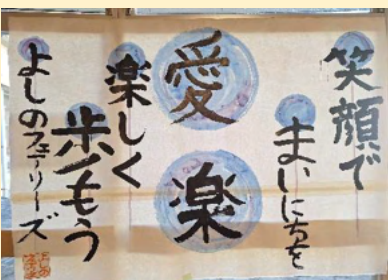 笑顔で
まいにちを
愛楽
楽しく
歩もう
よしのフェアリーズ